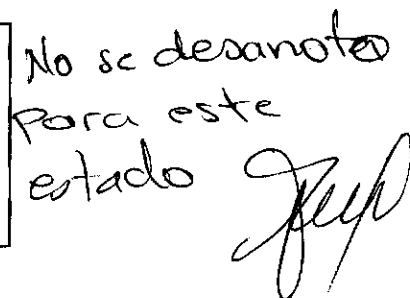 No se desanota
para este
estado